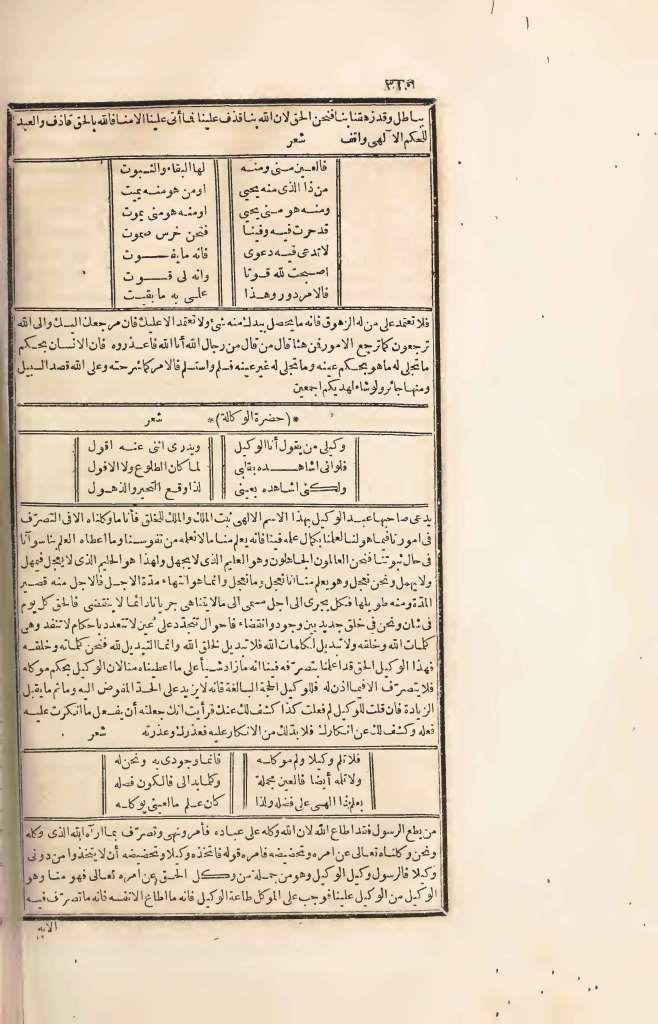 بباطل وقد زهقنا بنا فنحن الحق لان الله بنا قذف علينا فما أتى علينا الا منا فالله بالحق قاذف والعبد
للحكم الالهى واقف شعر
فالعين منى ومنه لها البقاء والثبوت
من ذا الذى منه يحيى اومن هو منه يميت
ومنه هو منى يحيى اومنه هو منى يموت
قد حرت فيه وفينا فنحن خرس صموت
لا تدعى فيه دعوى فانه ما يفوت
اصبحت لله قوتا وانه لى قوت
فالامر دور وهذا على به ما بقيت
فلا تعتمد على من له الزهوق فانه ما يحصل بيدك منه شئ ولا تعتمد الا عليك فان مرجعك اليك والى الله
ترجعون كما ترجع الامور فمن هنا قال من قال من رجال الله أنا الله فاعذروه فان الانسان بحكم
ما تجلى له ما هو بحكم عينه وما تجلى له غير عينه فسلم واستسلم فالامر كما شرحته وعلى الله قصد السبيل
ومنها جائر ولو شاء لهديكم اجمعين
*(حضرة الوكالة)* شعر
وكيلى من يقول أنا الوكيل ويدرى اننى عنه اقول
فلو انى اشاهده بقلبى لما كان الطلوع ولا الافول
ولكنى اشاهده بعينى لذا وقع التحير والذهول
يدعى صاحبها عبد الوكيل بهذا الاسم الالهى ثبت الملك والملك للخلق فأنا ما وكلناه الا فى التصرف
فى امورنا فيما هو لنا لعلمنا بكمال علمه فينا فانه يعلم منا ما لا نعلمه من نفوسنا وما اعطاه العلم بنا سوانا
فى حال ثبوتنا فنحن العالمون الجاهلون وهو العليم الذى لا يجهل ولهذا هو الحليم الذى لا يعجل فيمهل
ولا يهمل ونحن نعجل وهو يعلم منا انا نعجل وما نعجل وانما هو انتهاء مدة الاجل فالاجل منه قصير
المدة ومنه طويلها فكل يجرى الى اجل مسمى الى ما لا يتناهى جريا نا دائما لا ينقضى فالحق كل يوم
فى شان ونحن فى خلق جديد بين وجود وانقضاء فاحوال تتجدد على عين لا تتعدد باحكام لا تنفد وهى
كلمات الله وخلقه ولا تبديل لكلمات الله فلا تبديل لخلق الله وانما التبديل لله فنحن كلماته وخلقه
فهذا الوكيل الحق قد اعلمنا بتصرفه فينا انه ما زاد شيأ على ما اعطيناه منا لان الوكيل بحكم موكله
فلا يتصرف الا فيما اذن له فللوكيل الحجة البالغة فانه لا يزيد على الحد المفوض اليه وما ثم ما يقبل
الزيادة فان قلت للوكيل لم فعلت كذا كشف لك عنك فرأيت انك جعلته أن يفعل ما انكرت عليه
فعله وكشف لك عن انكارك فلا بد لك من الانكار عليه فعذرك وعذرته شعر
فلا تلم وكيلا ولم موكله فانما وجودى به ونحن له
ولا تلمه أيضا فالعين مجملة وكلما بدا لى فالكون فصله
يعلم ذا الهى على فضله ولذا كان علم ما لعينى يوكله
من يطع الرسول فقد اطاع الله لان الله وكله على عباده فأمر ونهى وتصرف بما اراه الله الذى وكله
ونحن وكلناه تعالى عن امره وتحضيضه فامره قوله فاتخذه وكيلا وتحضيضه أن لا يتخذوا من دونى
وكيلا فالرسول وكيل الوكيل وهو من جملة من وكل الحق عن امره تعالى فهو منا وهو
الوكيل من الوكيل علينا فوجب على الموكل طاعة الوكيل فانه ما اطاع الا نفسه فانه ما تصرف فيه
الا به